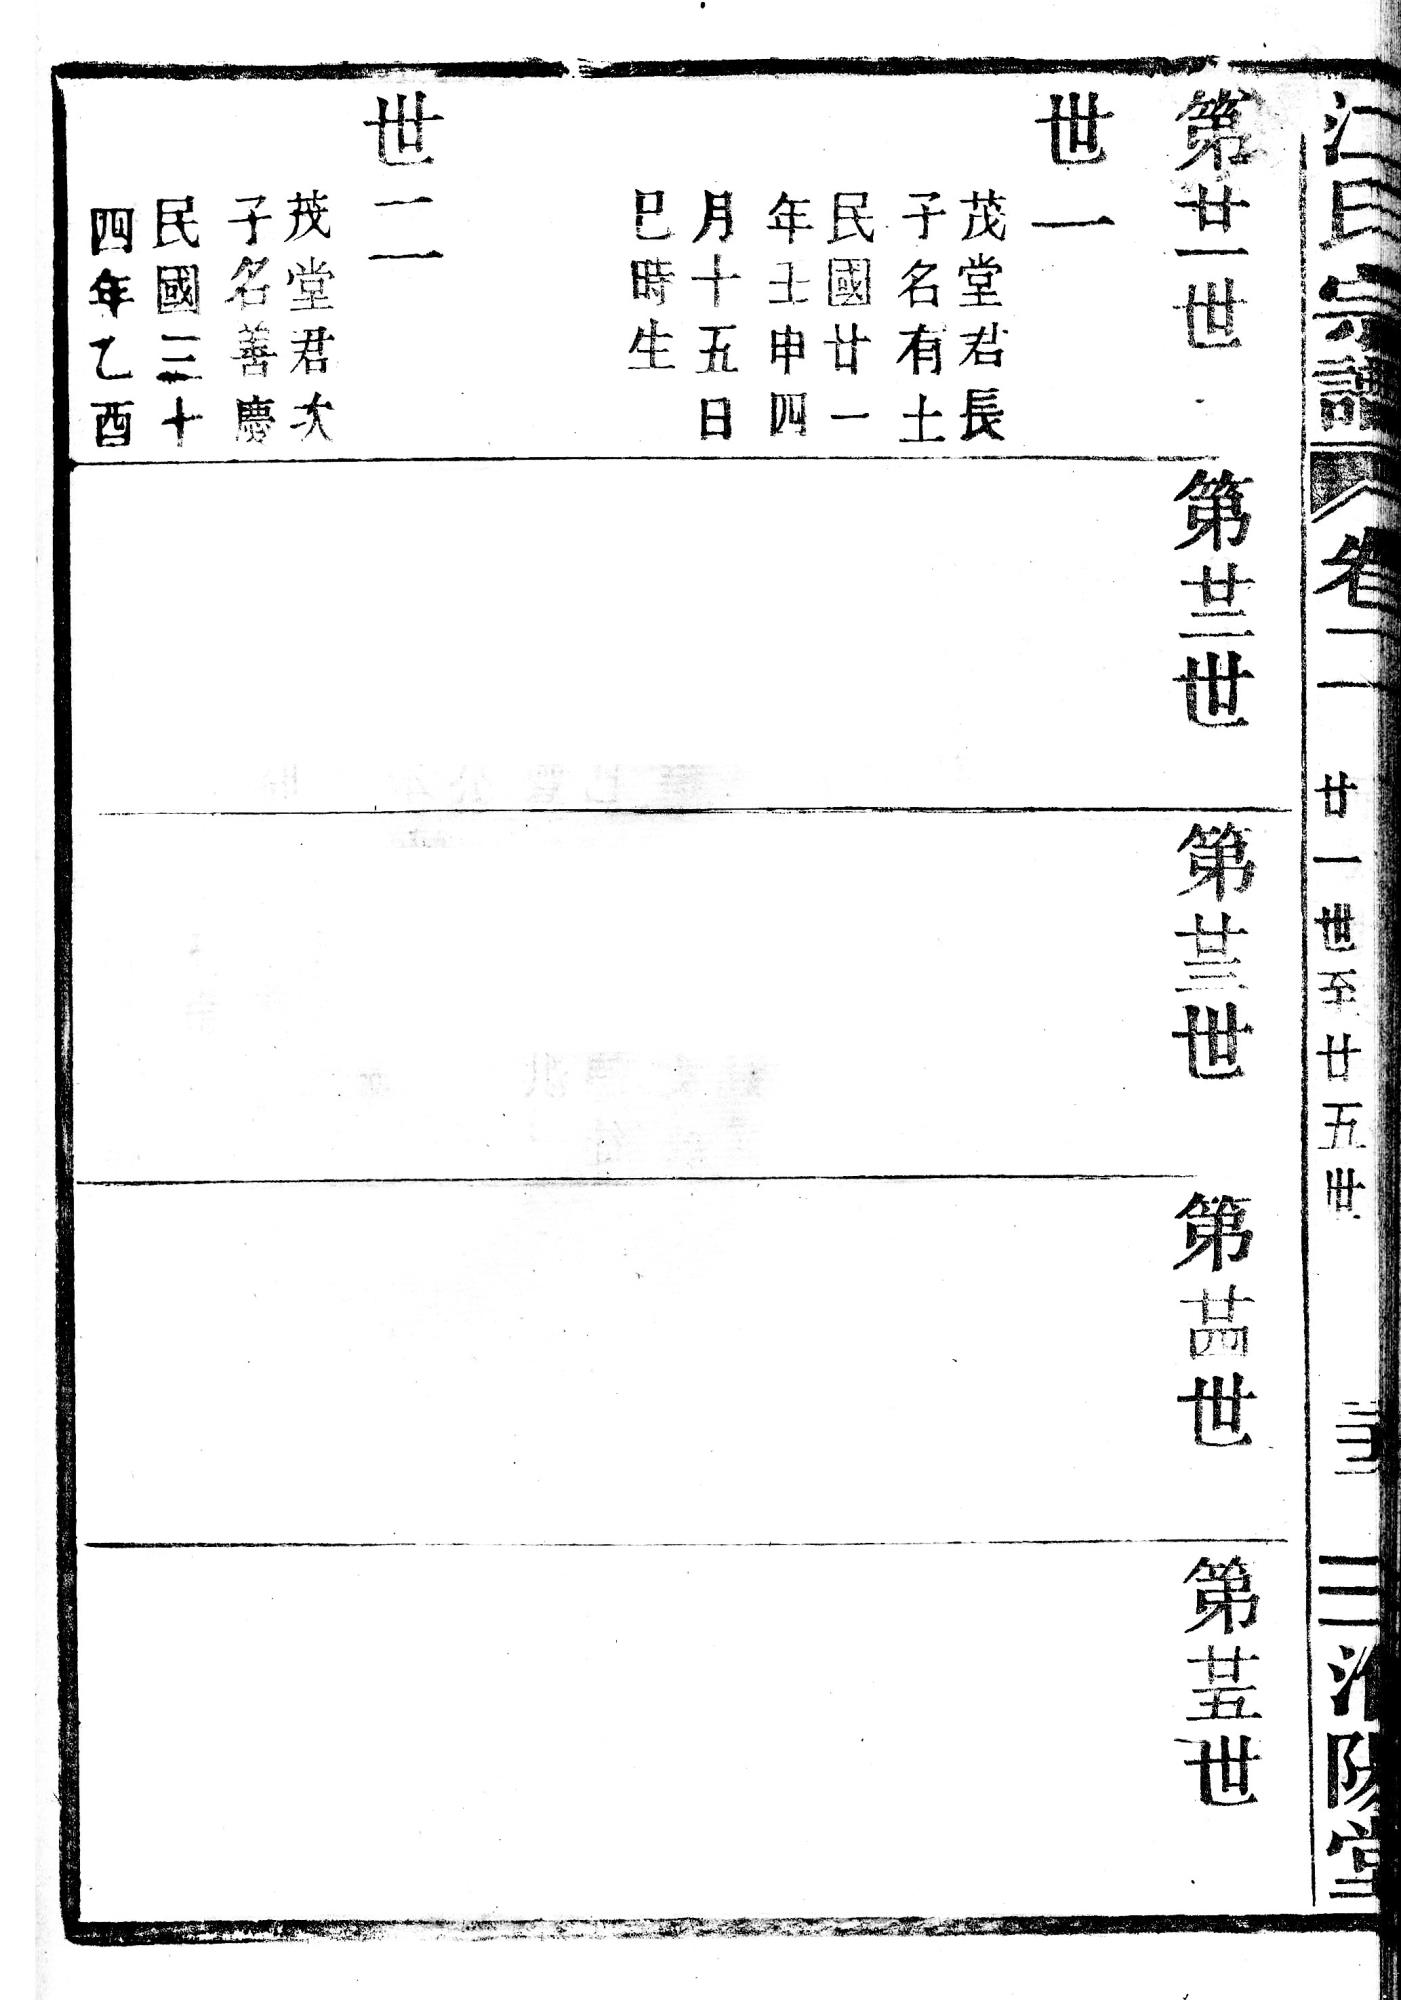 江氏宗譜
卷二
廿一世至廿五世
三 淮陽堂
第廿一世
世一
茂堂君長
子名有土
民國廿一
年壬申四
月十五日
巳時生
世二
茂堂君次
子名善慶
民國三十
四年乙酉
第廿二世
第廿三世
第廿四世
第廿五世